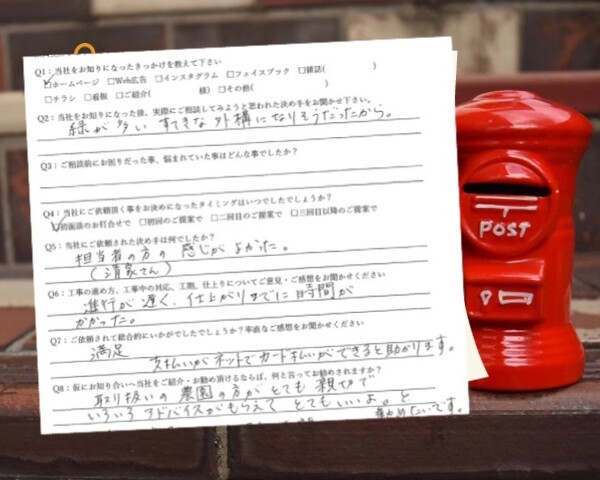 Q1：当社をお知りになったきっかけを教えて下さい
☑ホームページ □Web広告 □インスタグラム □フェイスブック □雑誌( )
□チラシ □看板 □ご紹介( 様) □その他( )
Q2：当社をお知りになった後、実際にご相談してみようと思われた決め手をお聞かせ下さい。
緑が多いすてきな外構になりそうだったから。
Q3：ご相談前にお困りだった事、悩まれていた事はどんな事でしたか？
Q4：当社にご依頼頂く事をお決めになったタイミングはいつでしたでしょうか？
☑初面談のお打合せで □初回のご提案で □二回目のご提案で □三回目以降のご提案で
Q5：当社にご依頼された決め手は何でしたか？
担当者の方の感じがよかった。
(清家さん)
Q6：工事の進め方、工事中の対応、工期、仕上りについてご意見・ご感想をお聞かせください
進行が遅く、仕上がりまでに時間が
かかった。
Q7：ご依頼されて総合的にいかがでしたでしょうか？率直なご感想をお聞かせください
満足
支払いがネットでカード払いができると助かります。
Q8：仮にお知り合いへ当社をご紹介・お勧め頂けるならば、何と言ってお勧めされますか？
取り扱いの農園の方がとても親切で
いろいろアドバイスがもらえてとてもいいよ。と
勧めたいです。
POST